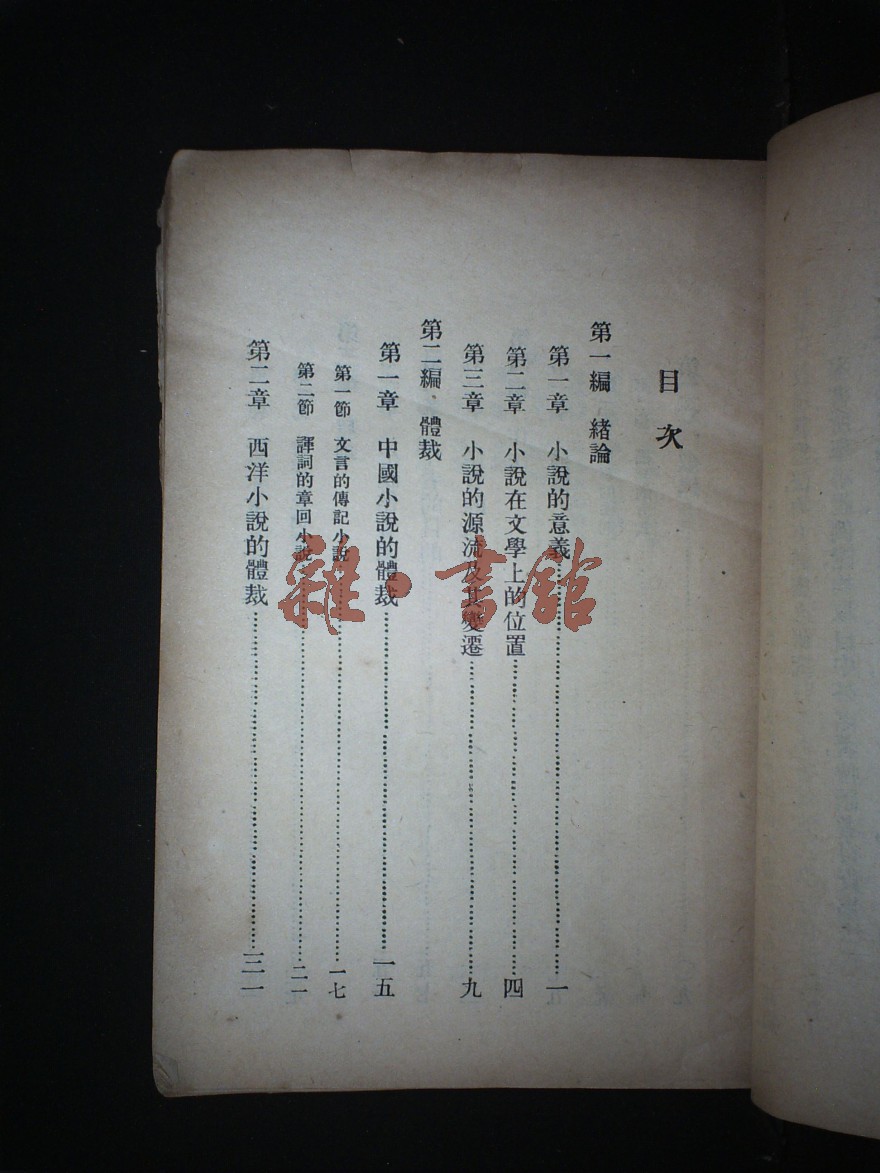 目次
第一編 緒論
第一章 小說的意義 一
第二章 小說在文學上的位置 四
第三章 小說的源流及其變遷 九
第二編 體裁
第一章 中國小說的體裁 一五
第一節 文言的傳記小說 一七
第二節 譚詞的章回小說 二一
第二章 西洋小說的體裁 三一
雜·書館